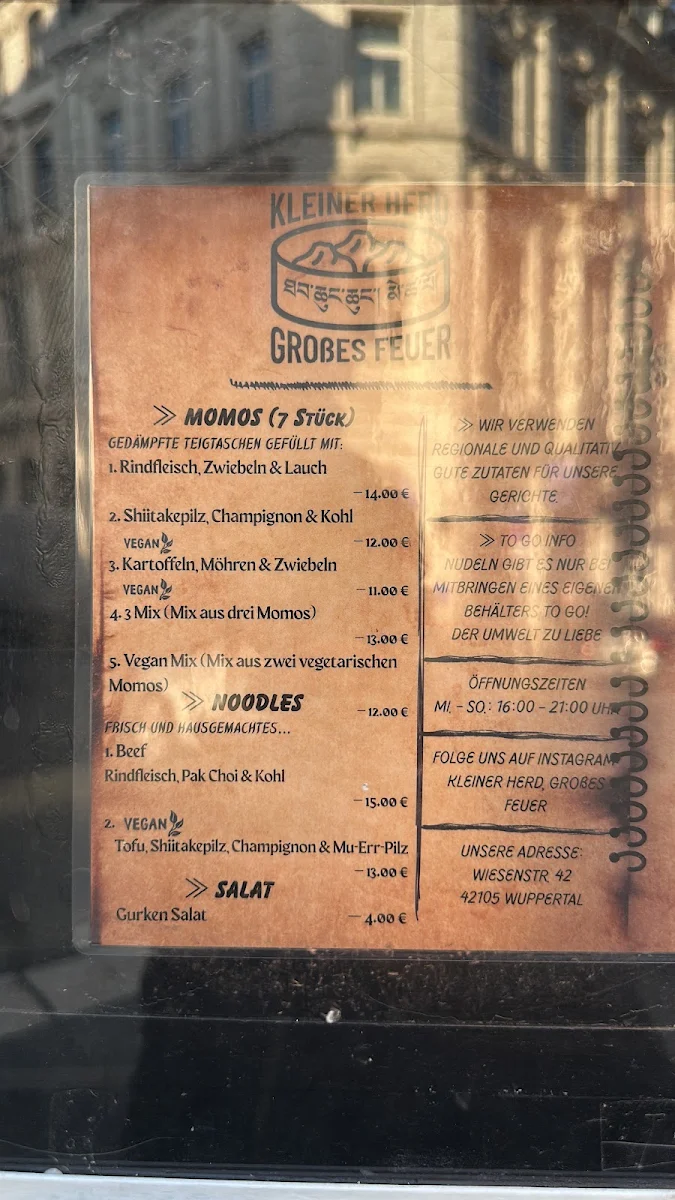 KLEINER HERD
ཐབ་ཆུང་ཆུང་། མེ་ཆེ་པོ
GROßES FEUER
>> MOMOS (7 STÜCK)
GEDÄMPFTE TEIGTASCHEN GEFÜLLT MIT:
1. Rindfleisch, Zwiebeln & Lauch
– 14.00 €
2. Shiitakepilz, Champignon & Kohl
VEGAN – 12.00 €
3. Kartoffeln, Möhren & Zwiebeln
VEGAN – 11.00 €
4. 3 Mix (Mix aus drei Momos)
– 13.00 €
5. Vegan Mix (Mix aus zwei vegetarischen
Momos)
– 12.00 €
>> NOODLES
FRISCH UND HAUSGEMACHTES...
1. Beef
Rindfleisch, Pak Choi & Kohl
– 15.00 €
2. VEGAN
Tofu, Shiitakepilz, Champignon & Mu-Err-Pilz
– 13.00 €
>> SALAT
Gurken Salat – 4.00 €
>> WIR VERWENDEN
REGIONALE UND QUALITATIV
GUTE ZUTATEN FÜR UNSERE
GERICHTE.
>> TO GO INFO
NUDELN GIBT ES NUR BEI
MITBRINGEN EINES EIGENEN
BEHÄLTERS TO GO!
DER UMWELT ZU LIEBE
ÖFFNUNGSZEITEN
MI. - SO.: 16:00 - 21:00 UHR
FOLGE UNS AUF INSTAGRAM
KLEINER HERD, GROßES
FEUER
UNSERE ADRESSE:
WIESENSTR. 42
42105 WUPPERTAL